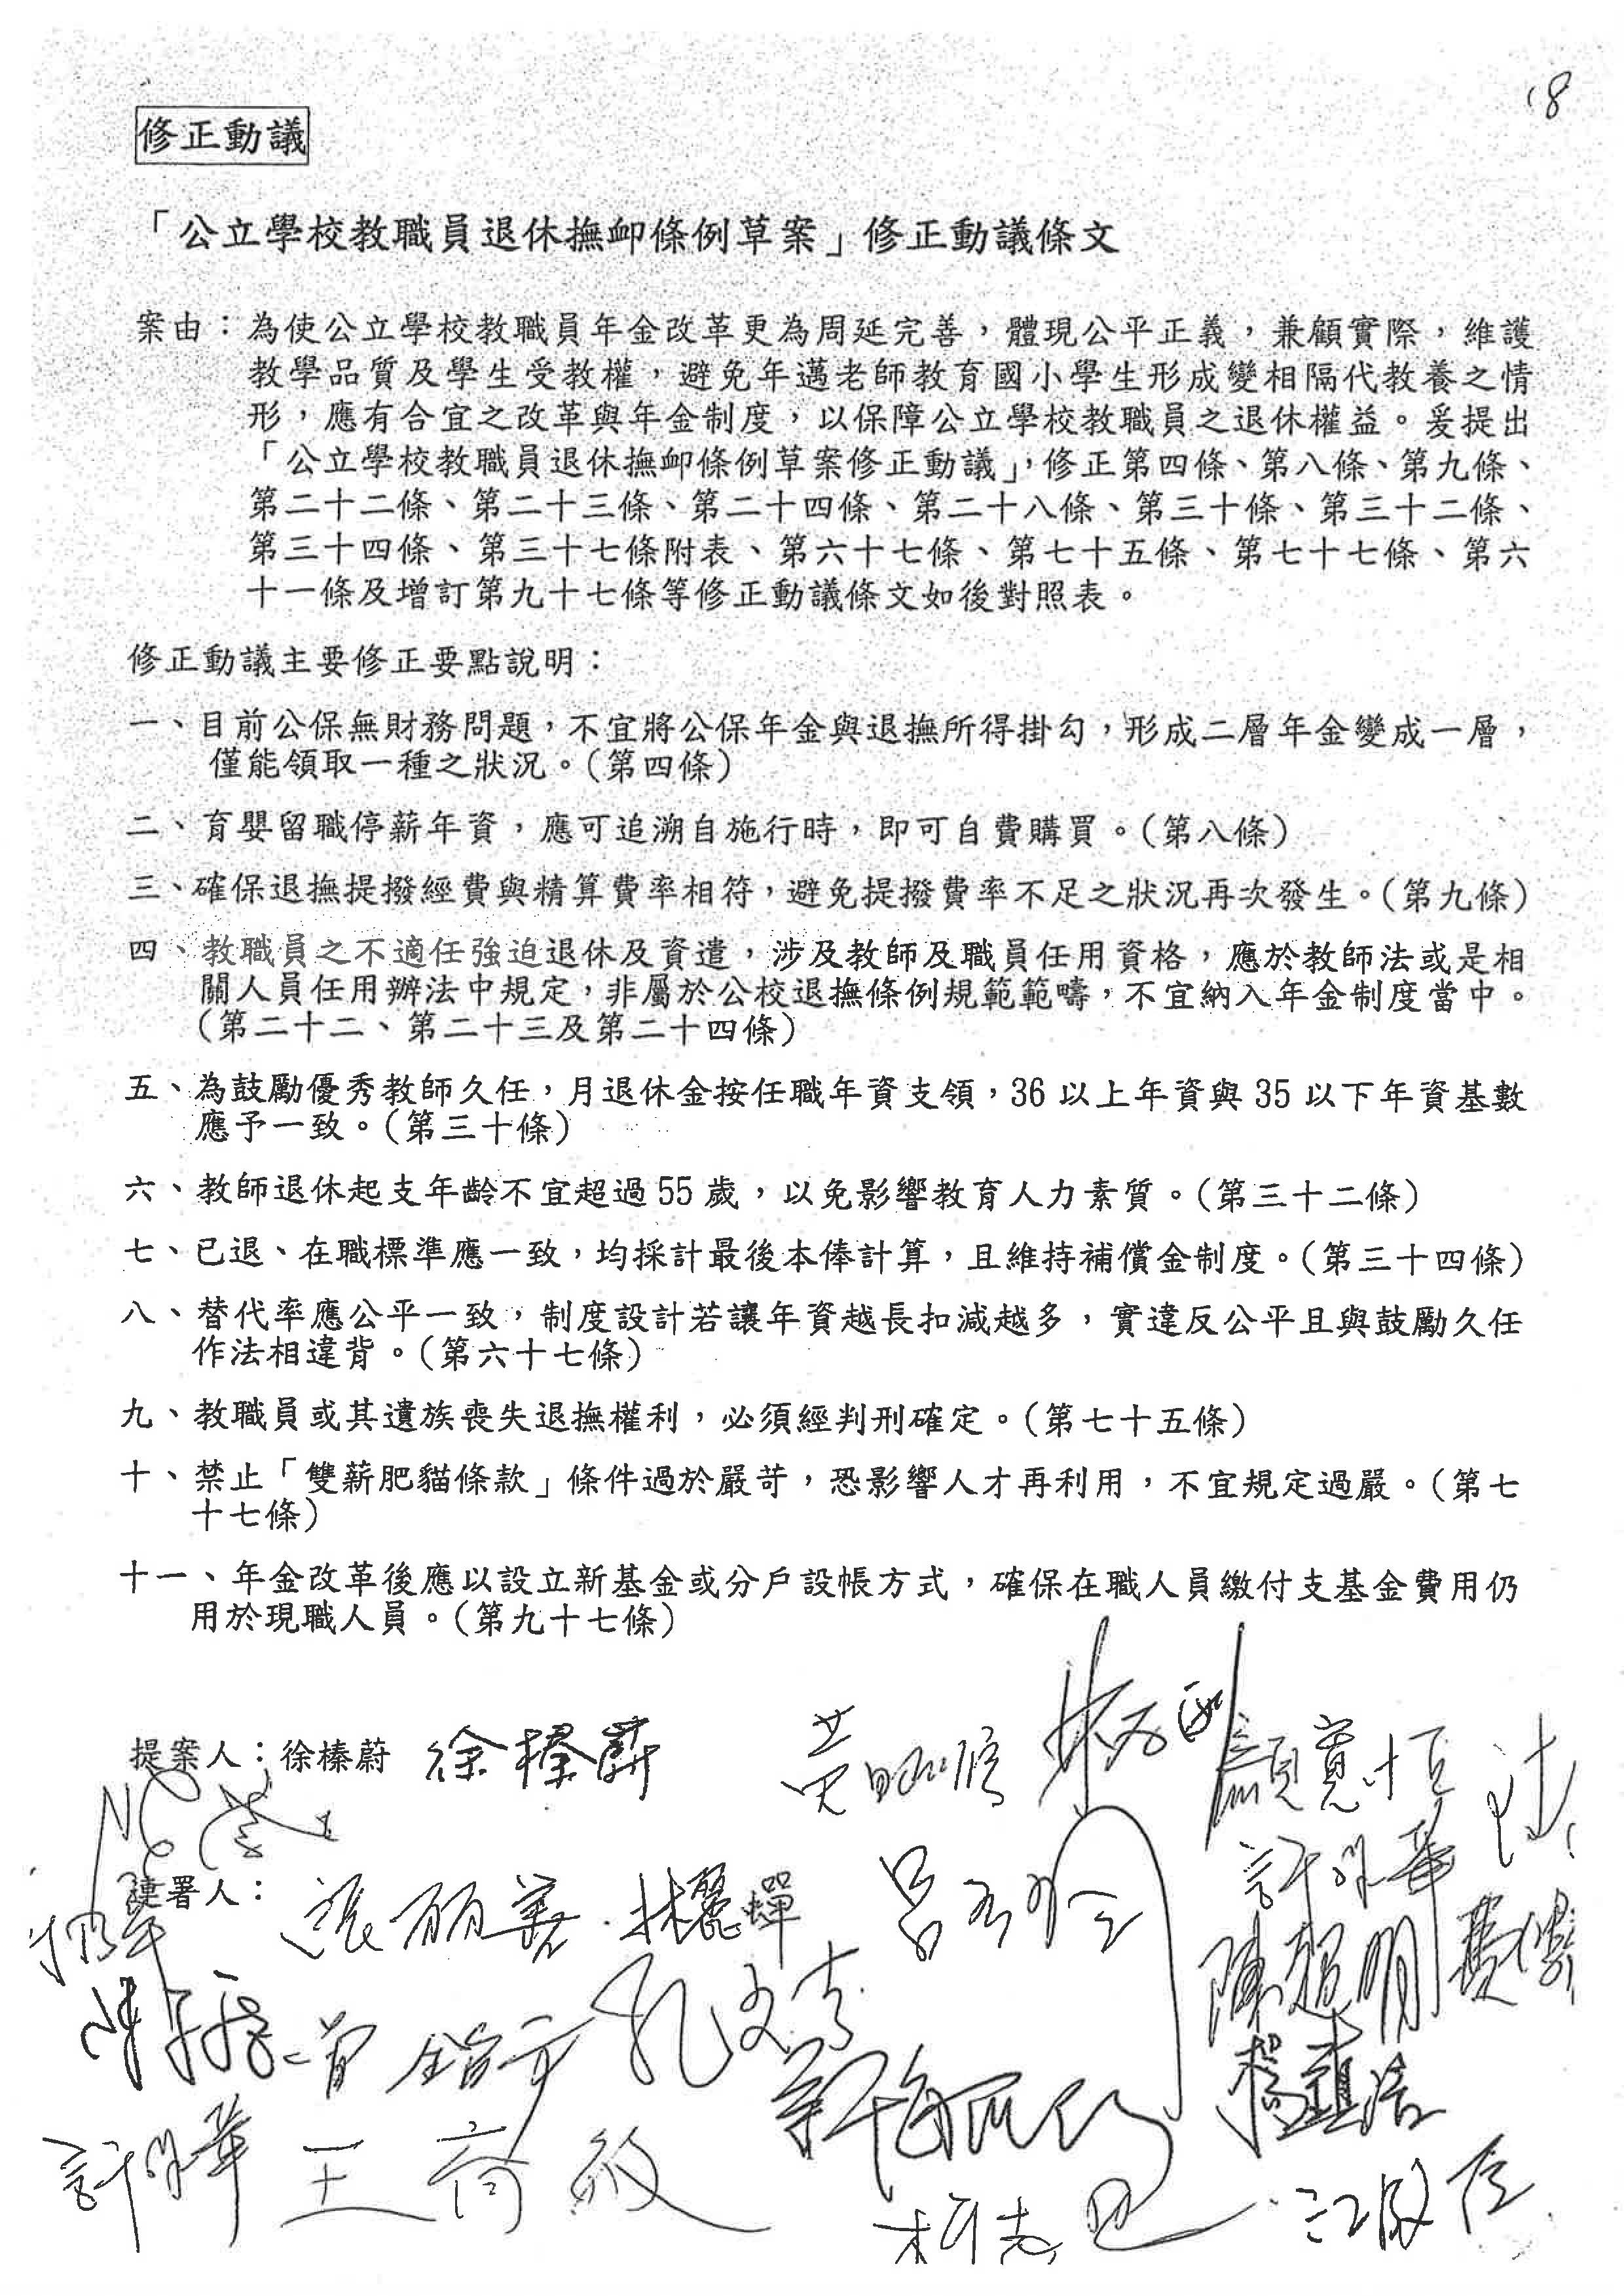 18
修正動議
「公立學校教職員退休撫卹條例草案」修正動議條文
案由：為使公立學校教職員年金改革更為周延完善，體現公平正義，兼顧實際，維護
教學品質及學生受教權，避免年邁老師教育國小學生形成變相隔代教養之情
形，應有合宜之改革與年金制度，以保障公立學校教職員之退休權益。爰提出
「公立學校教職員退休撫卹條例草案修正動議」，修正第四條、第八條、第九條、
第二十二條、第二十三條、第二十四條、第二十八條、第三十條、第三十二條、
第三十四條、第三十七條附表、第六十七條、第七十五條、第七十七條、第六
十一條及增訂第九十七條等修正動議條文如後對照表。
修正動議主要修正要點說明：
一、目前公保無財務問題，不宜將公保年金與退撫所得掛勾，形成二層年金變成一層，
僅能領取一種之狀況。（第四條）
二、育嬰留職停薪年資，應可追溯自施行時，即可自費購買。（第八條）
三、確保退撫提撥經費與精算費率相符，避免提撥費率不足之狀況再次發生。（第九條）
四、教職員之不適任強迫退休及資遣，涉及教師及職員任用資格，應於教師法或是相
關人員任用辦法中規定，非屬於公校退撫條例規範範疇，不宜納入年金制度當中。
（第二十二、第二十三及第二十四條）
五、為鼓勵優秀教師久任，月退休金按任職年資支領，36以上年資與35以下年資基數
應予一致。（第三十條）
六、教師退休起支年齡不宜超過55歲，以免影響教育人力素質。（第三十二條）
七、已退、在職標準應一致，均採計最後本俸計算，且維持補償金制度。（第三十四條）
八、替代率應公平一致，制度設計若讓年資越長扣減越多，實違反公平且與鼓勵久任
作法相違背。（第六十七條）
九、教職員或其遺族喪失退撫權利，必須經判刑確定。（第七十五條）
十、禁止「雙薪肥貓條款」條件過於嚴苛，恐影響人才再利用，不宜規定過嚴。（第七
十七條）
十一、年金改革後應以設立新基金或分戶設帳方式，確保在職人員繳付支基金費用仍
用於現職人員。（第九十七條）
提案人：徐榛蔚 徐榛蔚 黃昭順 顏寬恒
連署人： 張麗善 林麗蟬 呂玉玲 許淑華
陳超明 費鴻泰
曾銘宗 孔文吉 楊鎮浯
許淑華 王育敏 柯志恩 江啟臣